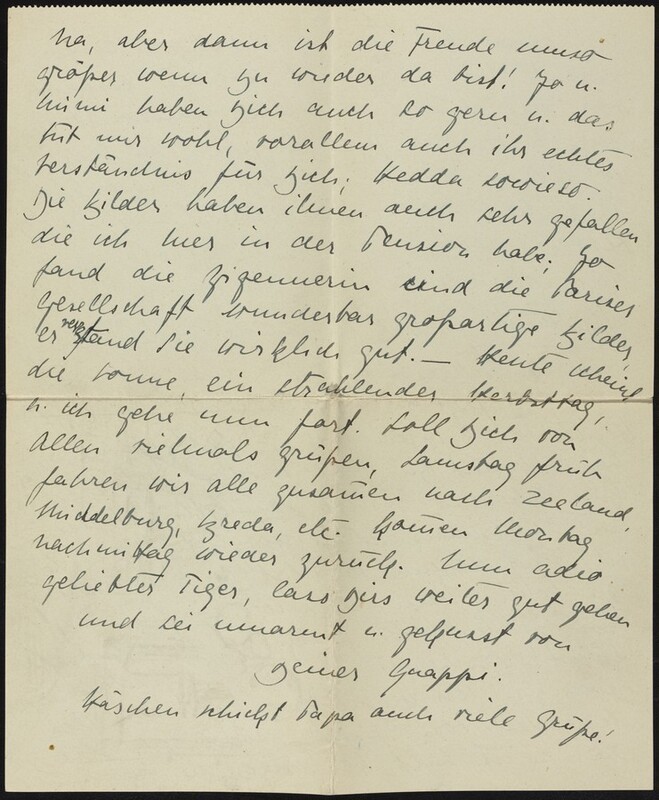 Na, aber dann ist die Freude umso
größer wenn Du wieder da bist! Jo u.
Mimi haben Dich auch so gern u. das
tut mir wohl, vorallem auch ihr echtes
Verständnis für Dich, Hedda sowieso.
Die Bilder haben ihnen auch sehr gefallen
die ich hier in der Pension habe, Jo
fand die Zigeunerin und die Pariser
Gesellschaft wunderbar großartige Bilder,
er verstand sie wirklich gut. — Heute scheint
die Sonne, ein strahlender Herbsttag,
u. ich gehe nun fort. Soll Dich von
allen vielmals grüßen, Samstag früh
fahren wir alle zusamen nach Zeeland,
Middelburg, Breda, etc. komen Montag
nachmittag wieder zurück. Nun adio
geliebter Tiger, lass Dirs weiter gut gehen
und sei umarmt u. geküsst von
Deiner Quappi.
Häschen schickt Papa auch viele Grüße!